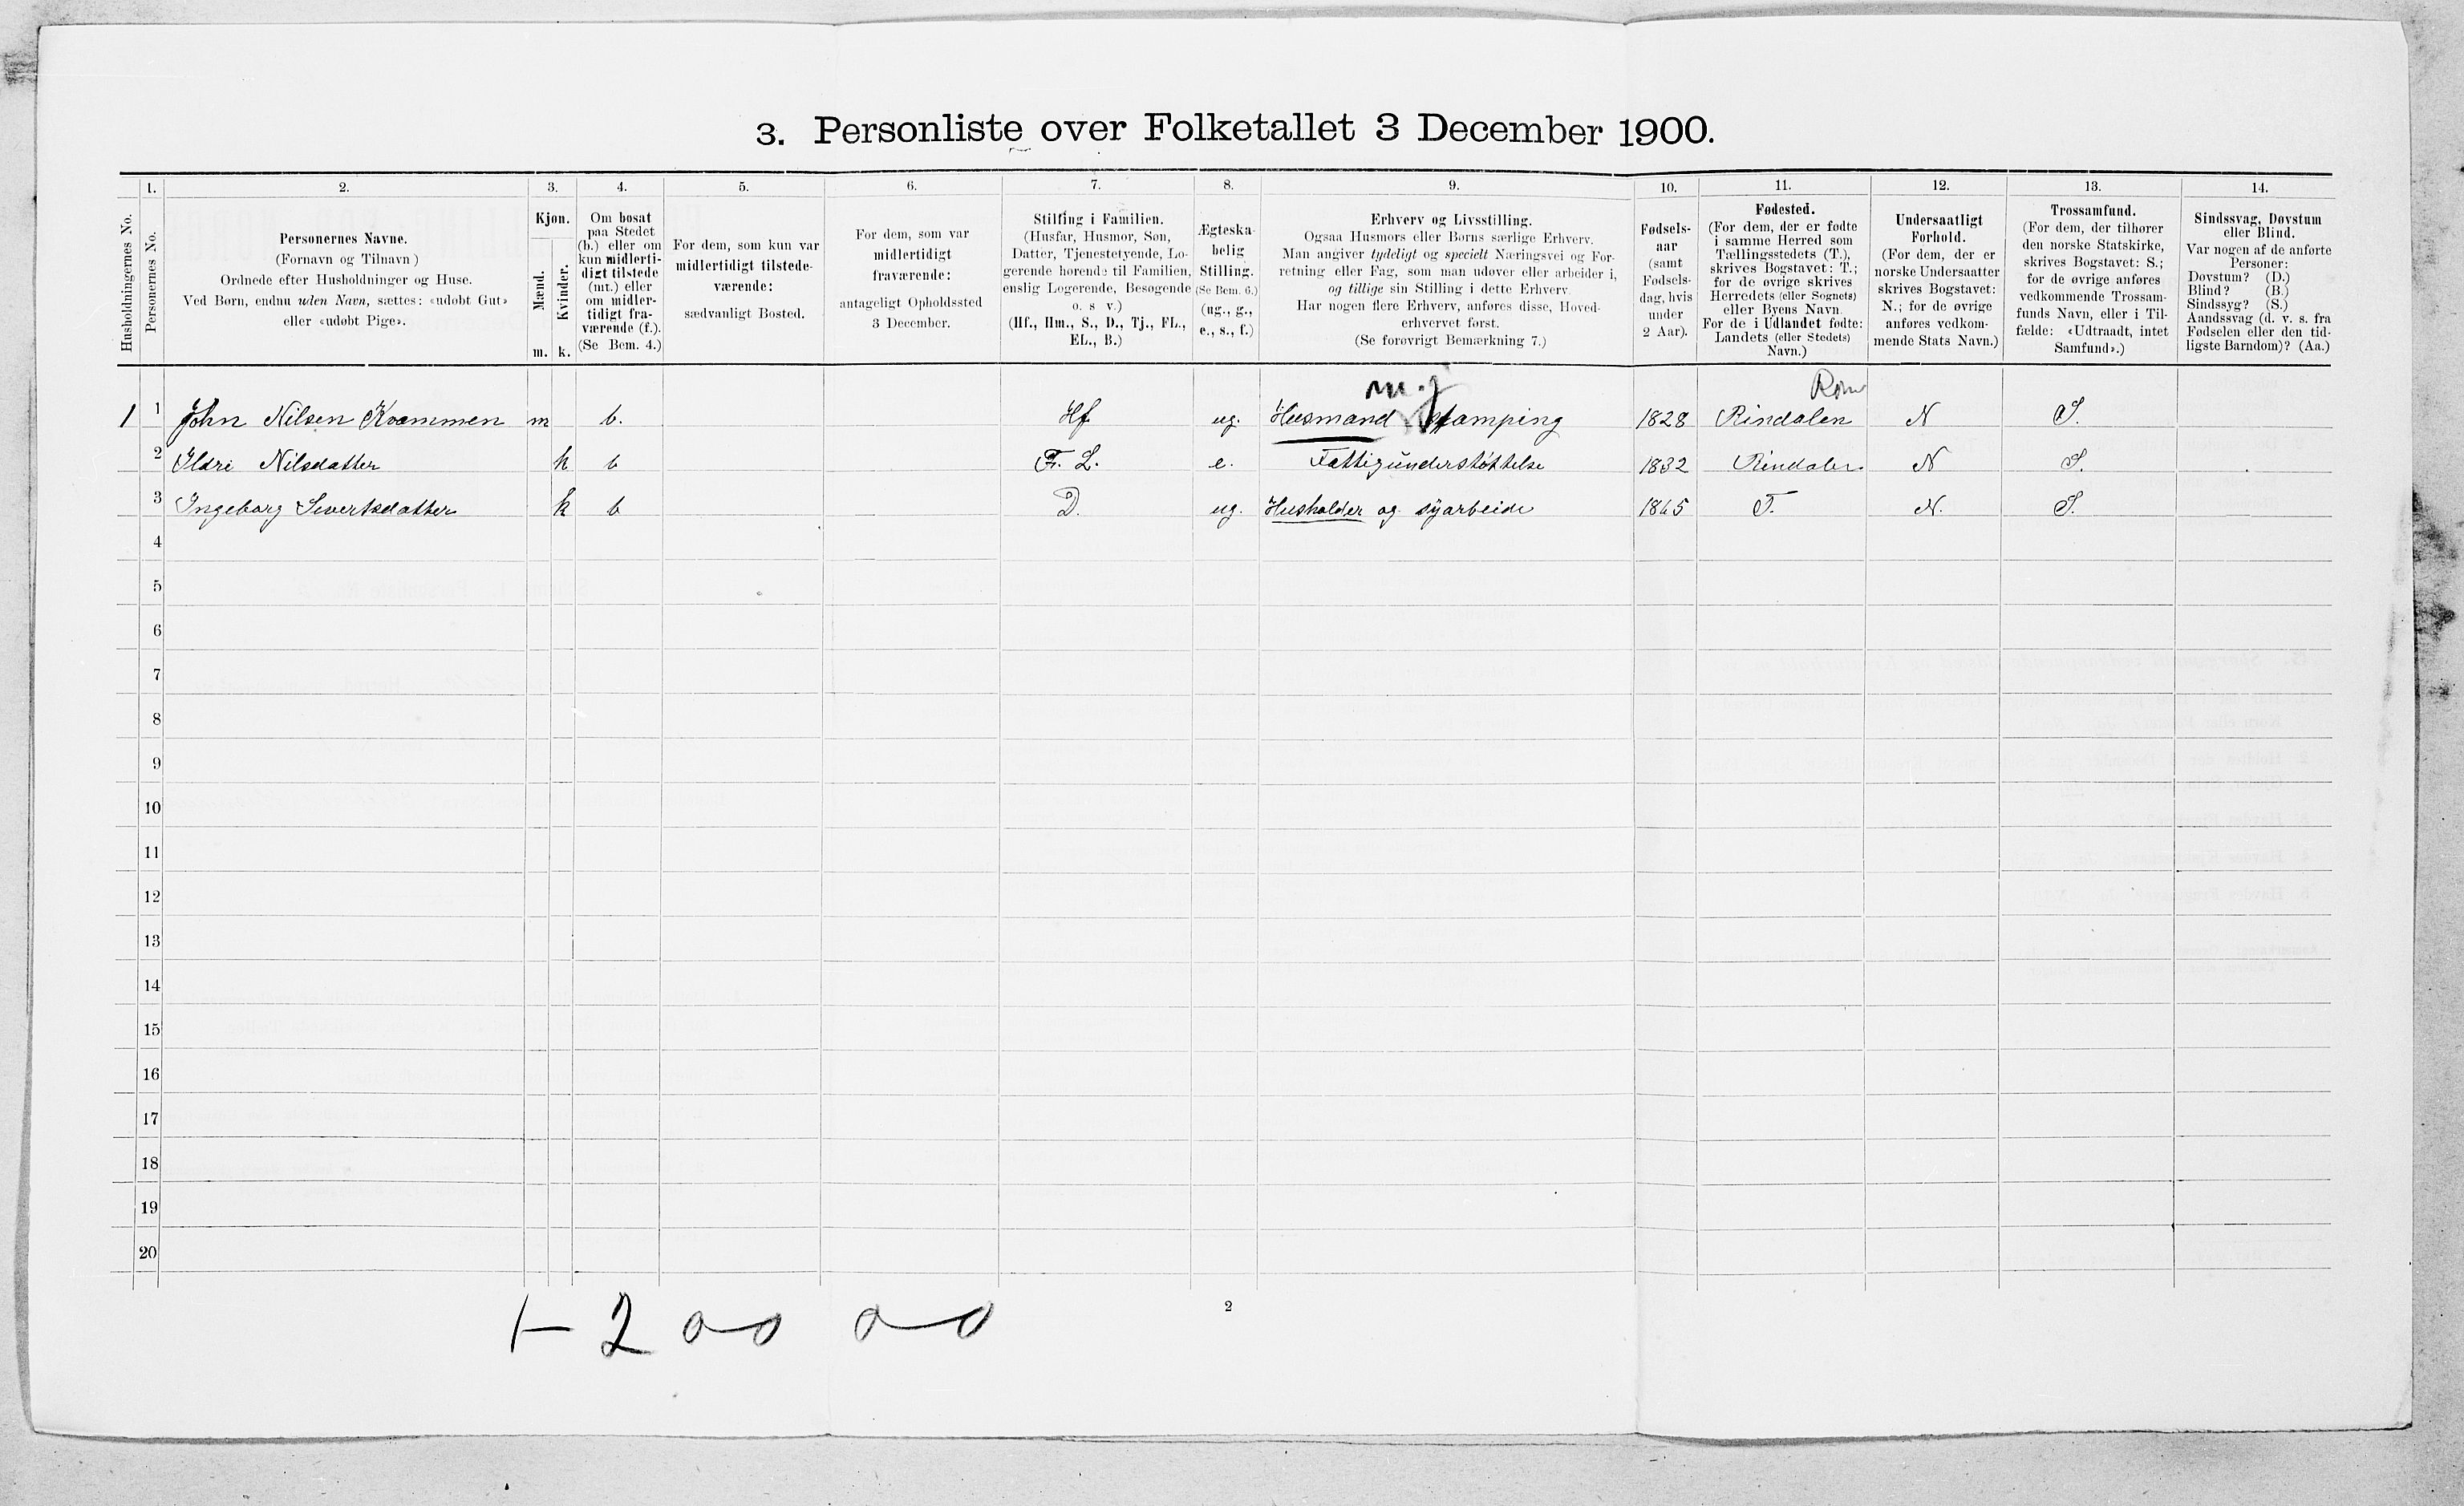 3. Personliste over Folketallet 3 December 1900.
Husholdningernes No.
1. Personernes No.
2.
Personernes Navne.
(Fornavn og Tilnavn)
Ordnede efter Husholdninger og Huse.
Ved Børn, endnu uden Navn, sættes: «udøbt Gut»
eller «udøbt Pige».
3.
Kjøn.
Mænd.
Kvinder.
m. k.
4.
Om bosat
paa Stedet
(b.) eller om
kun midlerti-
digt tilstede
(mt.) eller
om midler-
tidigt fra-
værende (f.).
(Se Bem. 4.)
5.
For dem, som kun var
midlertidigt tilstede-
værende:
sædvanligt Bosted.
6.
For dem, som var
midlertidigt
fraværende:
antageligt Opholdssted
3 December.
7.
Stilling i Familien.
(Husfar, Husmor, Søn,
Datter, Tjenestetyende, Lo-
gerende hørende til Familien,
enslig Logerende, Besøgende
o. s v.)
(Hf., Hm., S., D., Tj., FL.,
EL., B.)
8.
Ægteska-
belig
Stilling.
(Se Bem. 6.)
(ug., g.,
e., s., f.)
9.
Erhverv og Livsstilling.
Ogsaa Husmors eller Børns særlige Erhverv.
Man angiver tydeligt og specielt Næringsvei og For-
retning eller Fag, som man udøver eller arbeider i,
og tillige sin Stilling i dette Erhverv.
Har nogen flere Erhverv, anføres disse, Hoved-
erhvervet først.
(Se forøvrigt Bemærkning 7.)
10.
Fødsels-
aar
(samt
Fødsels-
dag, hvis
under
2 Aar).
11.
Fødested.
(For dem, der er fødte
i samme Herred som
Tællingsstedets (T.),
skrives Bogstavet: T.;
for de øvrige skrives
Herredets (eller Sognets)
eller Byens Navn.
For de i Udlandet fødte:
Landets (eller Stedets)
Navn.)
12.
Undersaatligt
Forhold.
(For dem, der er
norske Undersaatter
skrives Bogstavet:
N.; for de øvrige
anføres vedkom-
mende Stats Navn.)
13.
Trossamfund.
(For dem, der tilhører
den norske Statskirke,
skrives Bogstavet: S.;
for de øvrige anføres
vedkommende Trossam-
funds Navn, eller i Til-
fælde: «Udtraadt, intet
Samfund».)
14.
Sindssvag, Døvstum
eller Blind.
Var nogen af de anførte
Personer:
Døvstum? (D.)
Blind? (B.)
Sindssyg? (S.)
Aandssvag (d. v. s. fra
Fødselen eller den tid-
ligste Barndom)? (Aa.)
m.j Rom
1 1 John Nilsen Kvammen m b. Hf ug. Husmand stamping 1828 Rindalen N S.
2 Ildri Nilsdatter k b F. L. e. Fattigunderstøttelse 1832 Rindalen N S.
3 Ingeborg Sivertsdatter k b D. ug. Husholder og syarbeide 1865 T. N. S.
4
5
6
7
8
9
10
11
12
13
14
15
16
17
18
19
20
2
1 – 2 0–0 0–0